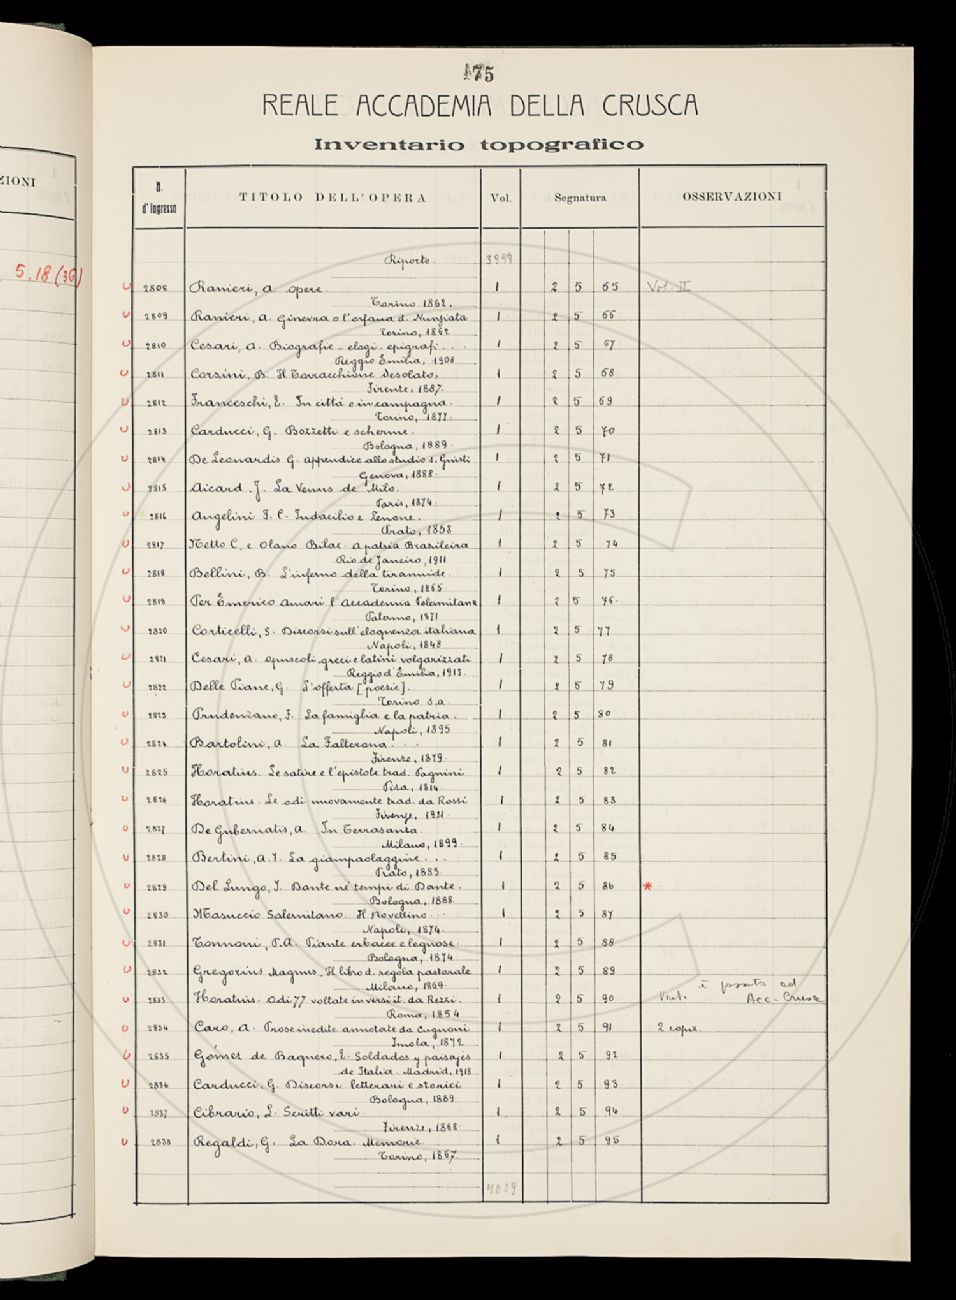 ZIONI
5.18 (36)
75
REALE ACCADEMIA DELLA CRUSCA
Inventario topografico
N. d'Ingresso TITOLO DELL'OPERA Vol. Segnatura OSSERVAZIONI
Riporto. 3998
2808 Ranieri, A. Opere. 1 2 5 65 Vol. II
Torino 1862.
2809 Ranieri, A. Ginevra o l'orfana d. Nunziata 1 2 5 66
Torino, 1862
2810 Cesari, A. Biografie - elogi - epigrafi... 1 2 5 67
Reggio Emilia, 1908
2811 Corsini, B. Il Torracchione desolato. 1 2 5 68
Firenze, 1887.
2812 Franceschi, E. In città e in campagna. 1 2 5 69
Torino, 1877.
2813 Carducci, G. Bozzetti e scherme. 1 2 5 70
Bologna, 1889.
2814 De Leonardis G. Appendice allo studio s. Giusti 1 2 5 71
Genova, 1888.
2815 Aicard, J. La Venus de Milo. 1 2 5 72
Paris, 1874.
2816 Angelini F. C. Indacilio e Zenone. 1 2 5 73
Prato, 1858
2817 Netto C. e Olavo Bilac. A patria Brazileira 1 2 5 74
Rio de Janeiro, 1911
2818 Bellini, B. L'inferno della tirannide. 1 2 5 75
Torino, 1865
2819 Per Emerico Amari l'Accademia Palermitana 1 2 5 76.
Palermo, 1871
2820 Corticelli, S. Discorsi sull'eloquenza italiana 1 2 5 77
Napoli, 1848
2821 Cesari, A. Opuscoli greci e latini volgarizzati 1 2 5 78
Reggio d'Emilia, 1913.
2822 Delle Piane, G. L'offerta [poesie]. 1 2 5 79
Torino s.a.
2823 Prudenzano, F. La famiglia e la patria. 1 2 5 80
Napoli, 1895
2824 Bartolini, A. La Falterona... 1 2 5 81
Firenze, 1879.
2825 Horatius. Le satire e l'epistole trad. Pagnini 1 2 5 82
Pisa, 1814
2826 Horatius. Le odi nuovamente trad. da Rossi 1 2 5 83
Firenze, 1921.
2827 De Gubernatis, A. In Terrasanta. 1 2 5 84
Milano, 1899.
2828 Bertini, A. F. La giampaolaggine... 1 2 5 85
Prato, 1885.
2829 Del Lungo, I. Dante ne' tempi di Dante. 1 2 5 86 *
Bologna, 1888.
2830 Masuccio Salernitano. Il Novellino... 1 2 5 87
Napoli, 1874.
2831 Tonnoni, P.A. Piante erbacee e legnose. 1 2 5 88
Bologna, 1874
2832 Gregorius Magnus. Il libro d. regola pastorale 1 2 5 89
Milano, 1869.
2833 Horatius. Odi 77 voltate in versi it. da Rezzi. 1 2 5 90 Acc. Crusca
Roma, 1854
2834 Caro, A. Prose inedite annotate da Cugnoni 1 2 5 91 2 copie.
Imola, 1872
2835 Gómez de Baquero, E. Soldados y paisajes 1 2 5 92
de Italia. Madrid, 1918.
2836 Carducci, G. Discorsi letterari e storici 1 2 5 93
Bologna, 1889.
2837 Cibrario, L. Scritti vari 1 2 5 94
Firenze, 1868.
2838 Regaldi, G. La Dora. Memorie. 1 2 5 95
Torino, 1867.
4029